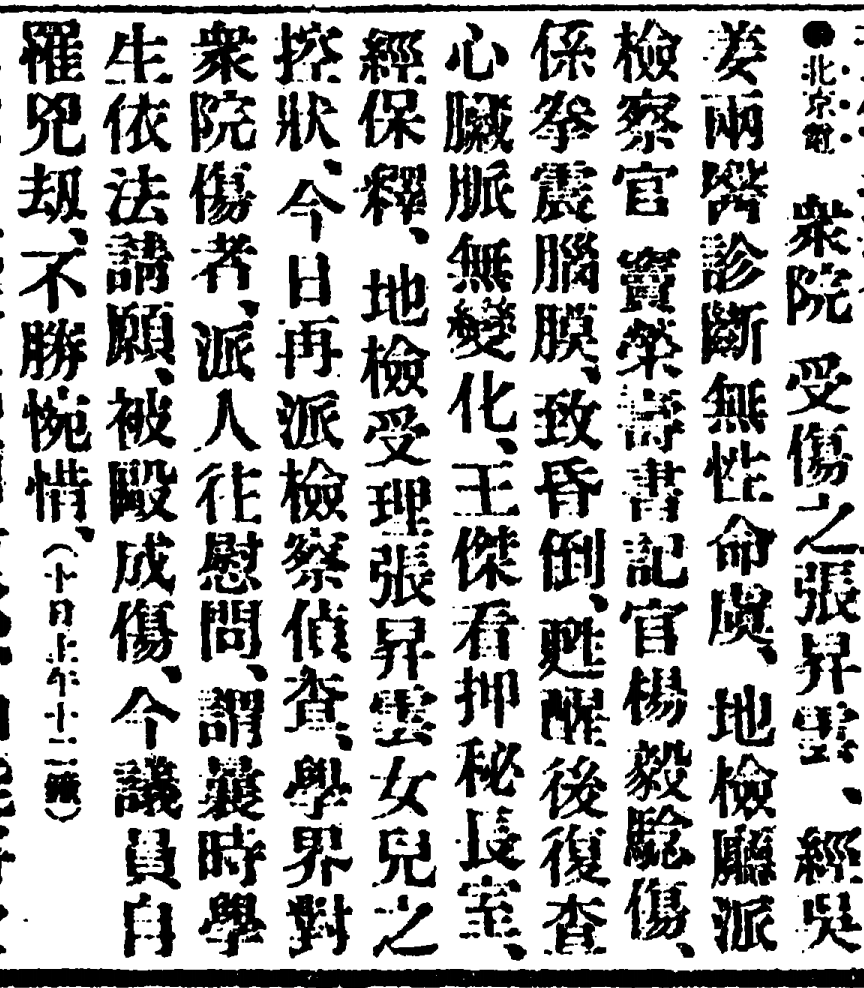 ●北京電 衆院受傷之張昇雲、經吳
姜兩醫診斷無性命虞、地檢廳派
檢察官竇榮壽書記官楊毅驗傷、
係拳震腦膜、致昏倒、甦醒後復查
心臟脈無變化、王傑看押秘長室、
經保釋、地檢受理張昇雲女兒之
控狀、今日再派檢察偵查、學界對
衆院傷者、派人往慰問、謂曩時學
生依法請願、被毆成傷、今議員自
罹兇劫、不勝惋惜、(十日上午十二鐘)